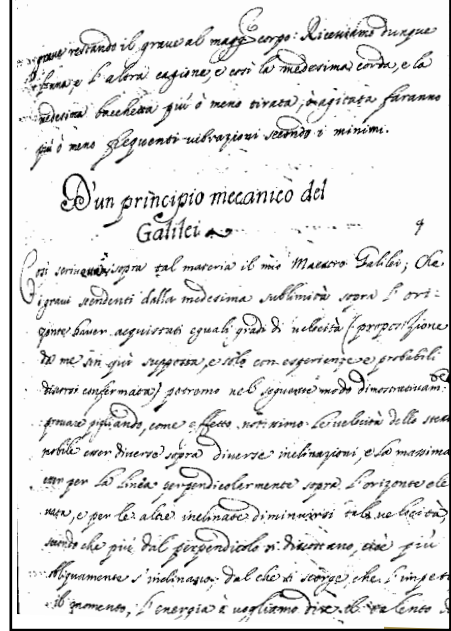 grave restando il grave al magg. corpo: Riceviamo dunque
l'una, e l'altra cagione, e così la medesima corda, e la
medesima bacchetta più ò meno tirata, ò agitata faranno
più ò meno frequenti vibrazioni secondo i minimi.
D'un principio meccanico del
Galilei
Così scriveva sopra tal materia il mio Maestro Galilei; Che
i gravi scendenti dalla medesima sublimità sopra l'ori-
zonte haver acquistati eguali gradi di velocità (proposizione
da me sin quì supposta, e solo con esperienze e probabili
discorsi confermata) potremo nel seguente modo dimostrativam.te
provare pigliando, come effetto notissimo le velocità dello stesso
mobile esser diverse sopra diverse inclinazioni, e la massima
esser per la linea perpendicolarmente sopra l'orizonte ele
vata, e per le altre inclinate diminuirsi tale velocità,
secondo che più dal perpendicolo si discostano, cioè più
obliquamente s'inclinano, dal che si scorge, che l'impeto
il momento, l'energia ò vogliamo dire il talento